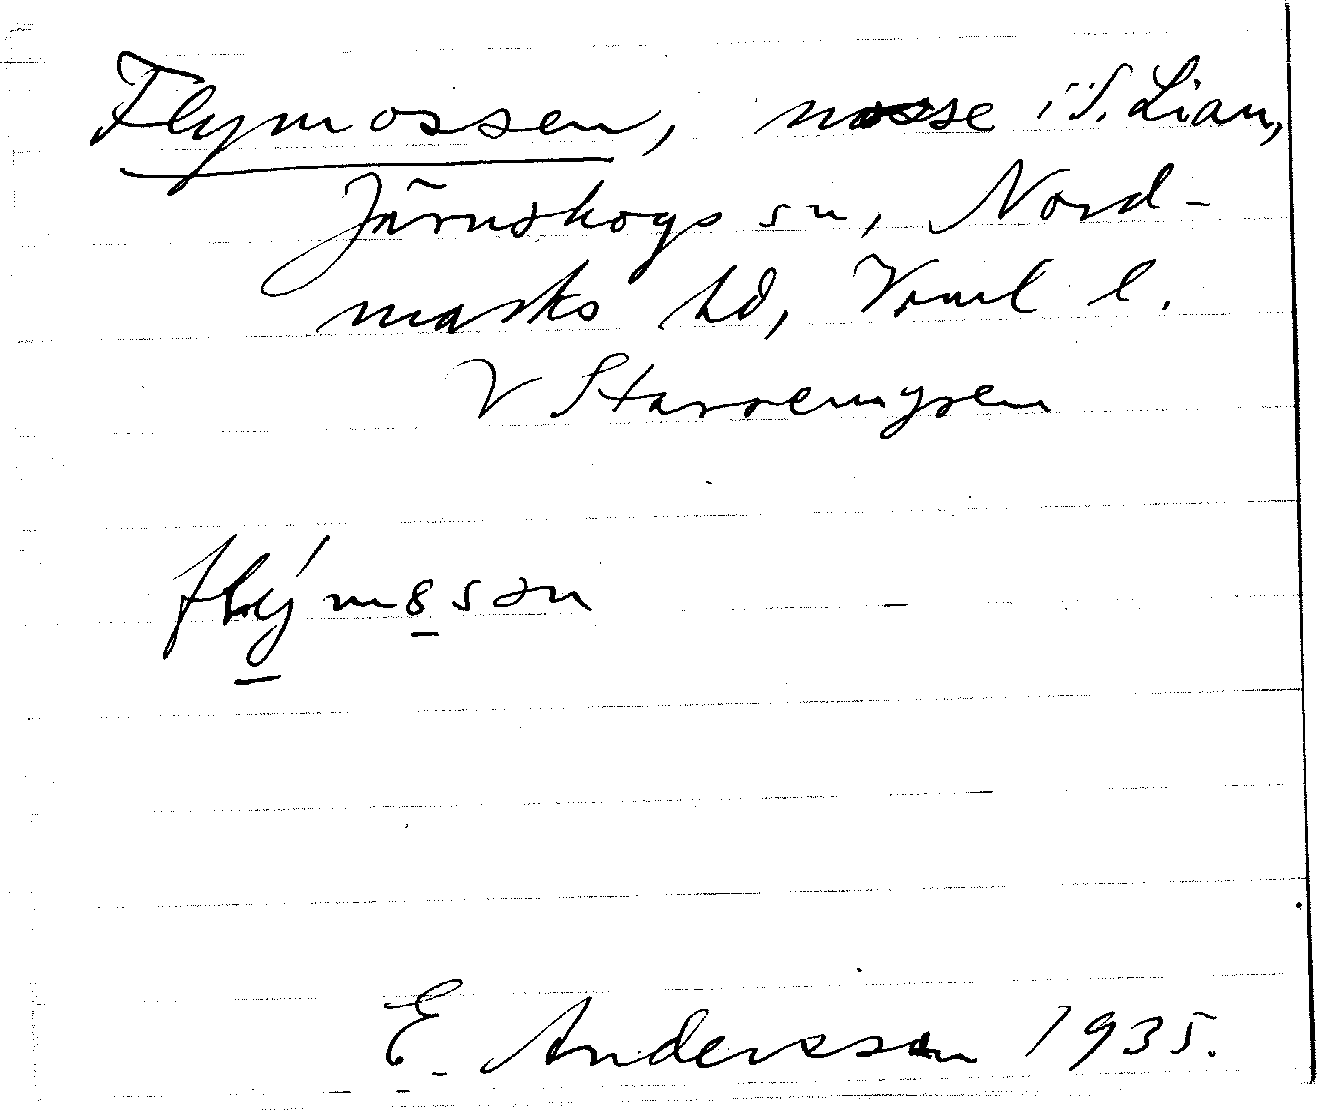 Flymossen, mosse i S. Lian,
Järnskogs sn, Nord-
marks hd, Vrml l.
V
flýmossən
E. Andersson 1935.